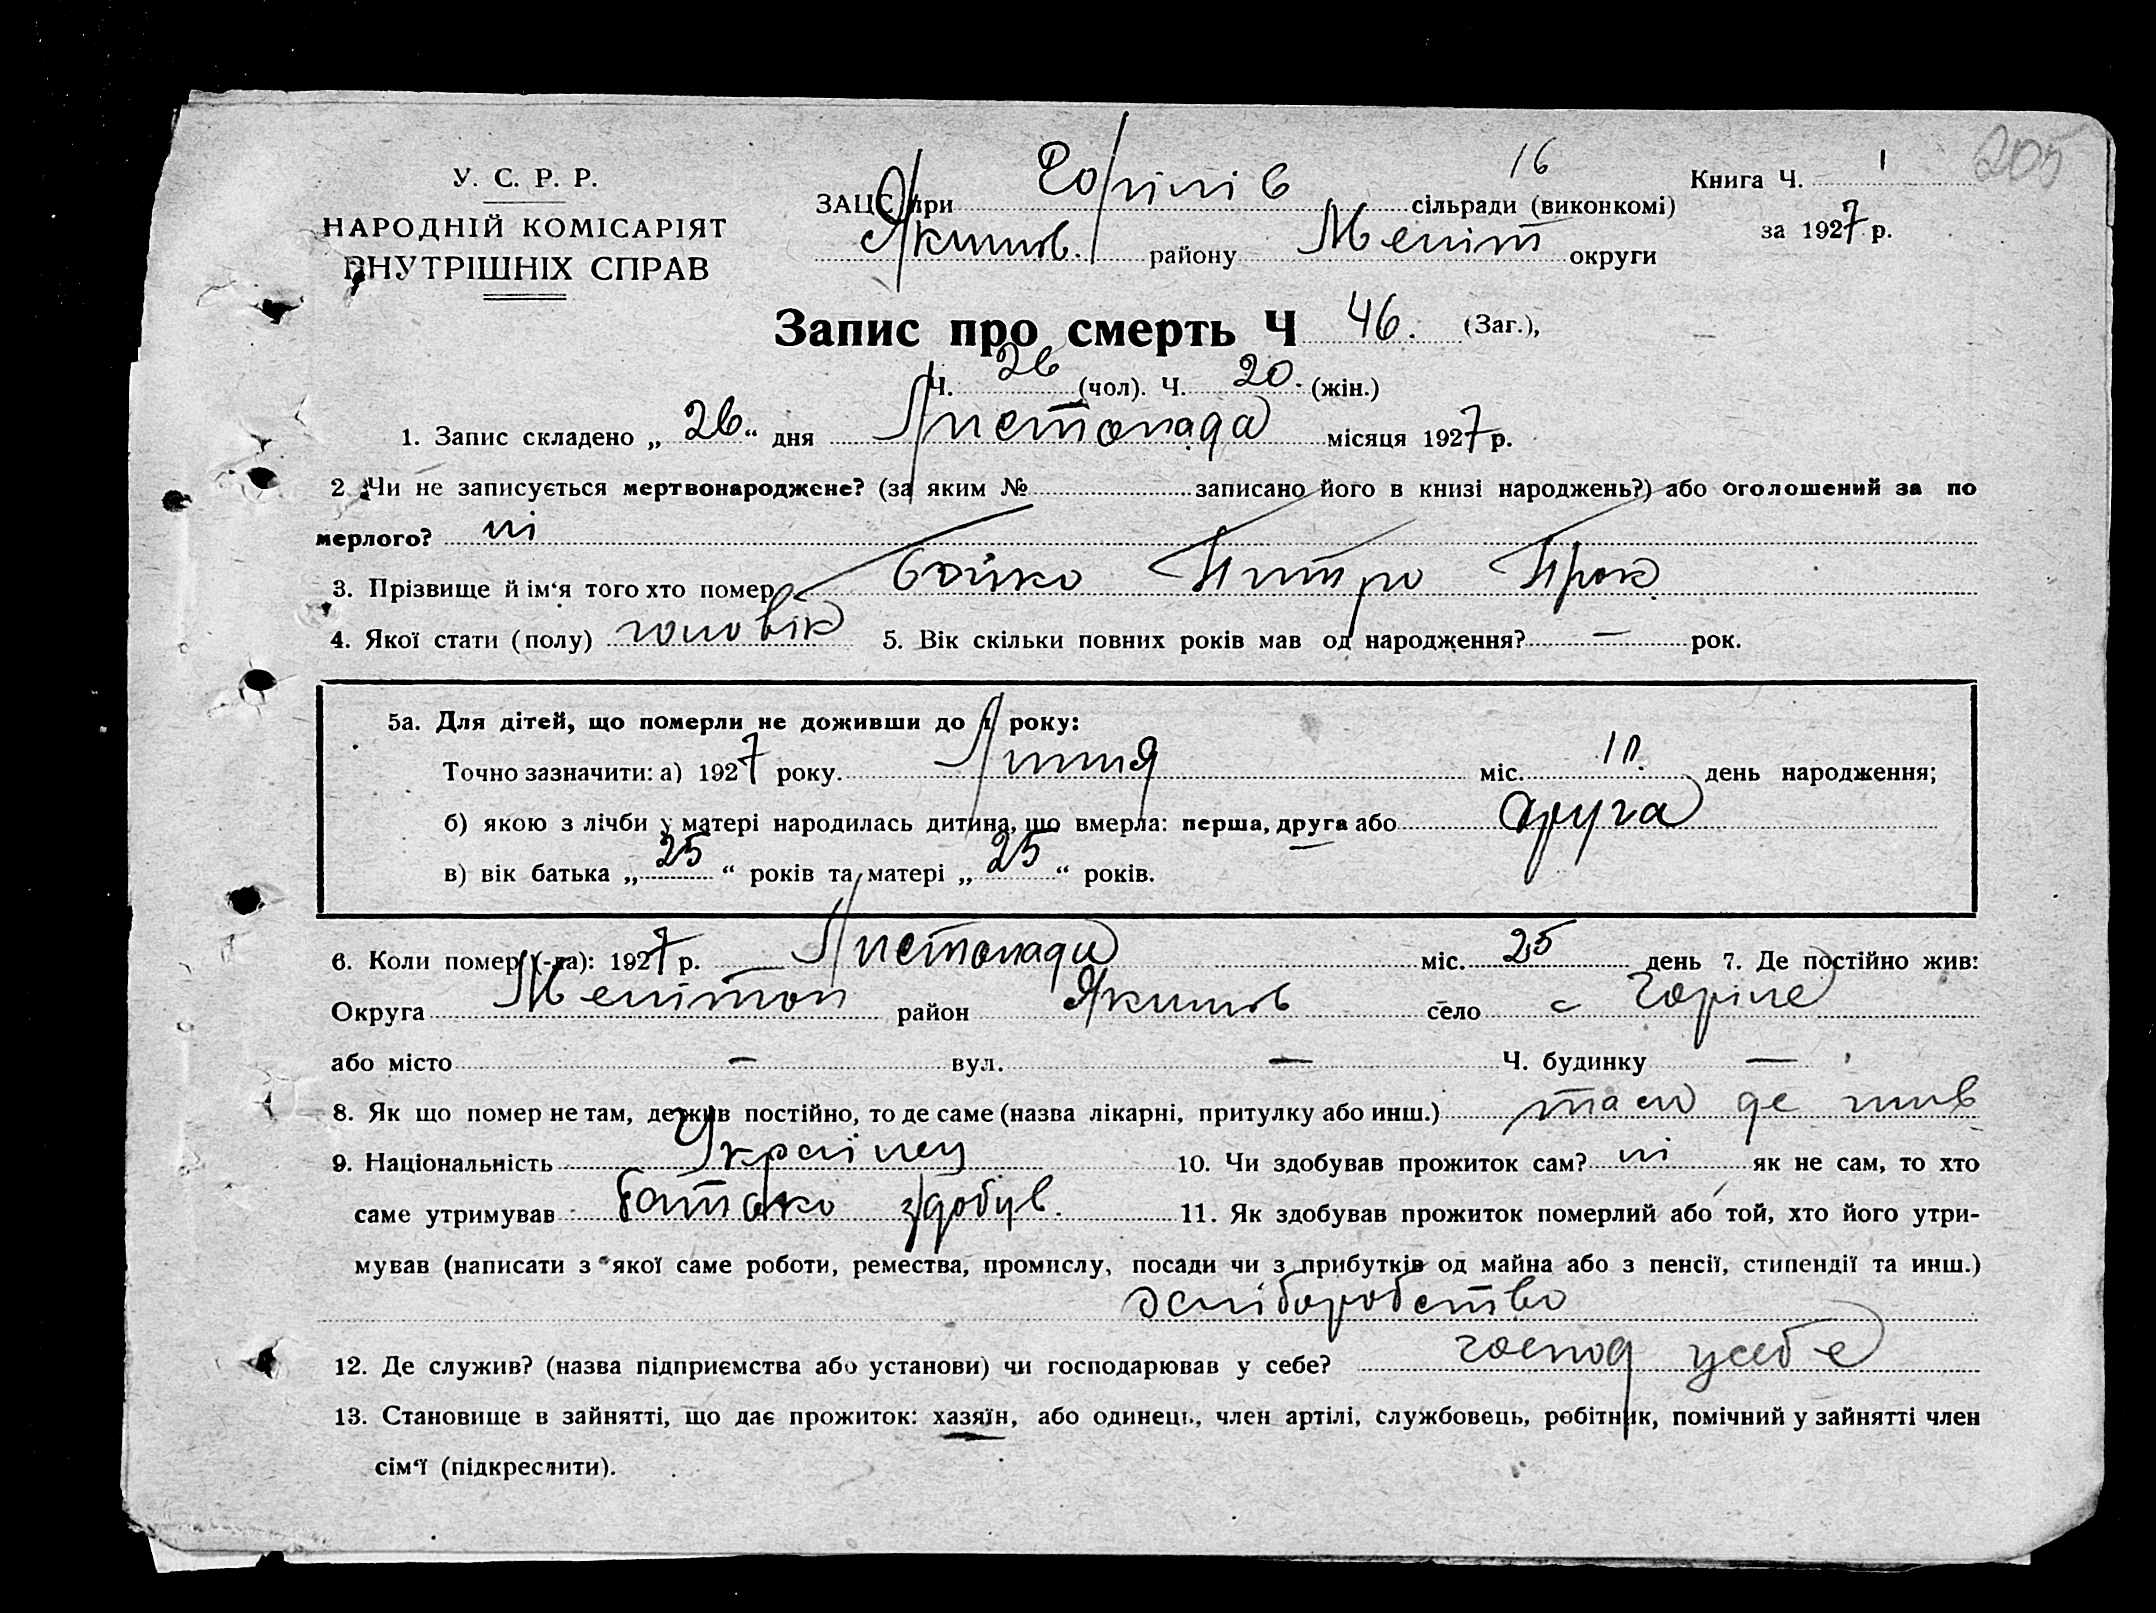 205
У. С. Р. Р.
НАРОДНІЙ КОМІСАРІЯТ
ВНУТРІШНІХ СПРАВ
ЗАЦС при Горілів 16 сільради (виконкомі)
Якимів. району Меліт округи
Книга Ч. 1
за 1927 р.
Запис про смерть Ч 46. (Заг.),
Ч. 26 (чол). Ч. 20. (жін.)
1. Запис складено „ 26 “ дня Листопада місяця 1927 р.
2 Чи не записується мертвонароджене? (за яким № записано його в книзі народжень?) або оголошений за по
мерлого? ні
3. Прізвище й ім‘я того хто помер Бойко Питро Прок
4. Якої стати (полу) чоловік 5. Вік скільки повних років мав од народження? — рок.
5а. Для дітей, що померли не доживши до 1 року:
Точно зазначити: а) 1927 року. Липня міс. день народження;
б) якою з лічби у матері народилась дитина, що вмерла: перша, друга або друга
в) вік батька „ 25 “ років та матері „ 25 “ років.
6. Коли помер (-ла): 1927 р. Листопада міс. 25 день 7. Де постійно жив:
Округа Мелітоп район Якимів село с Горіле
або місто — вул. — Ч. будинку —
8. Як що помер не там, де жив постійно, то де саме (назва лікарні, притулку або инш.) тамо де жив
9. Національність Украінец 10. Чи здобував прожиток сам? ні як не сам, то хто
саме утримував батько здобув. 11. Як здобував прожиток померлий або той, хто його утри-
мував (написати з якої саме роботи, ремества, промислу, посади чи з прибутків од майна або з пенсії, стипендії та инш.)
хліборобство
12. Де служив? (назва підприємства або установи) чи господарював у себе? господ усебе
13. Становище в зайнятті, що дає прожиток: хазяїн, або одинець, член артілі, службовець, робітник, помічний у зайнятті член
сім‘ї (підкреслити).